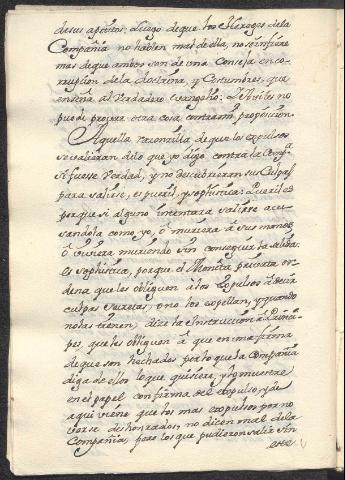 de sus aſertos. Luego de que los Hereges de la
Compañia no hablen mas de ella, no se infiere
mas de que ambos son de una Conseja en co-
rrupcion de la doctrina, y Costumbres, que
enseña al Verdadero evangelio: no
puede provar otra cosa proposicion.
Aquella razoncilla de que los expulsos
se valieran de lo que yo digo contra la Comp.ª
si fuesse Verdad, y no descubrieran sus Culpas
para salirse, es pueril, y sophistica: Pueril es
porque si alguno intentara salirse acu-
sandola como yo, ò muriera à sus manos
ò viviera muriendo sin conseguir la salida.
es sophistica, porque el Monita privata or-
dena que les obliguen à los expulsos à decir
culpas secretas, ò no los expellan, y quando
no las tienen, dize la Instruccion à Princi-
pes, que les obliguen à que en una firma
de que son hechados por lo que la Compañia
diga de ellos lo que quisiere, y lo muestre
en el papel con firma del expulso, y de
aqui viene que los mas expulsos por no
verse deshonrados, no dicen mal de la
Compañia, pero los que pudieron salir sin